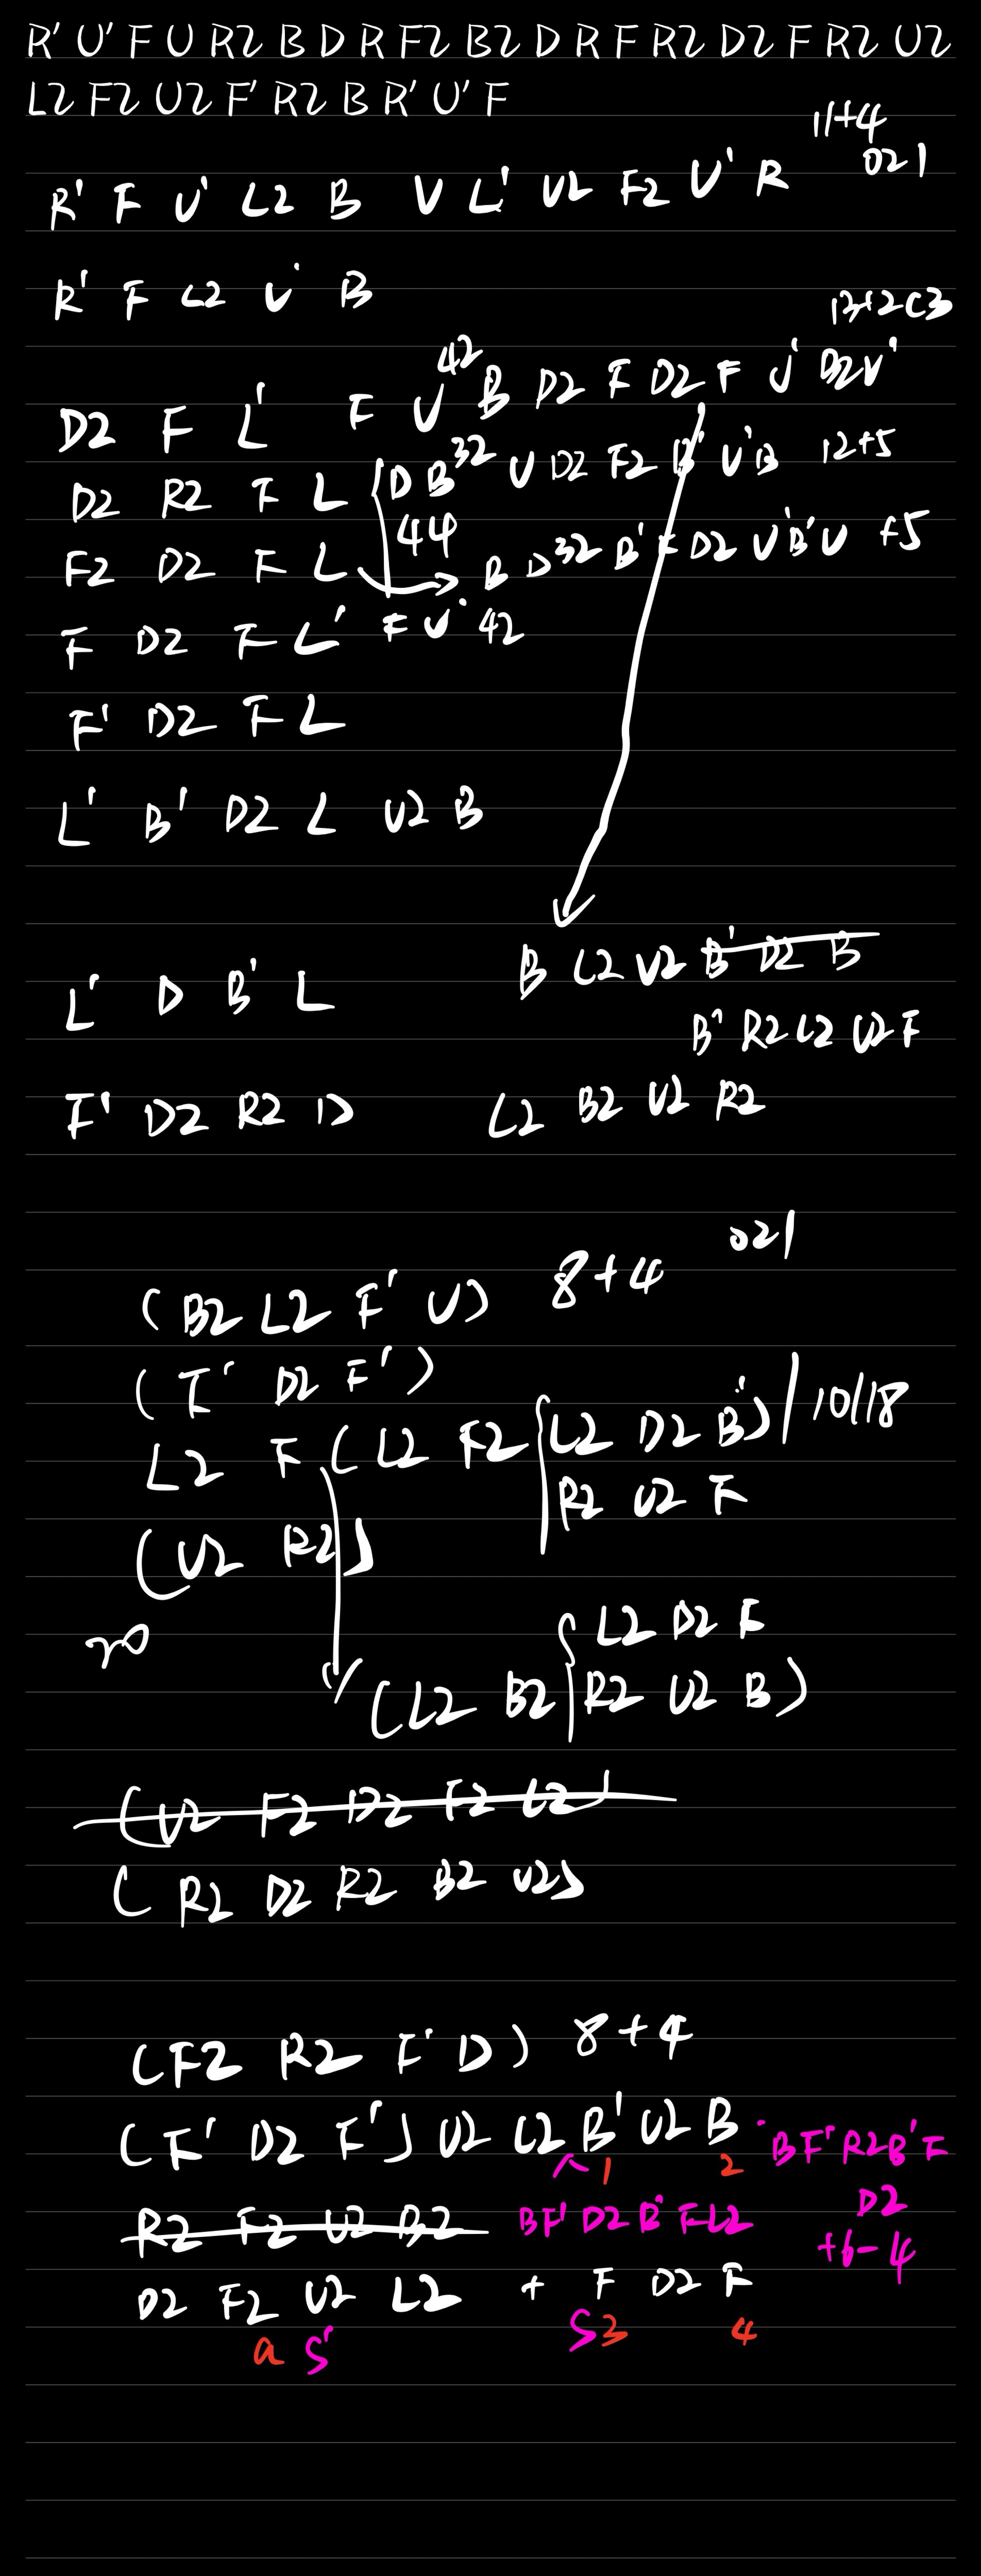 R' U' F U R2 B D R F2 B2 D R F R2 D2 F R2 U2
L2 F2 U2 F' R2 B R' U' F
11+4
021
R' F U' L2 B U L' U2 F2 U' R
R' F L2 U' B
13+2C3
D2 F L' F U' 42 B D2 F D2 F U' B2 U'
D2 R2 F L D B 32 U D2 F2 B' U' B 12+5
F2 D2 F L 44 B D 32 B' F D2 U' B' U +5
F D2 F L' F U' 42
F' D2 F L
L' B' D2 L U2 B
B L2 U2 B' D2 B
L' D B' L
B' R2 L2 U2 F
F' D2 R2 D L2 B2 U2 R2
021
(B2 L2 F' U) 8+4
(F' D2 F')
L2 F (L2 F2 L2 D2 B') / 10/18
R2 U2 F
(U2 R2)
20
L2 D2 F
(L2 B2 R2 U2 B)
(U2 F2 D2 F2 L2)
(R2 D2 R2 B2 U2)
(F2 R2 F' D) 8+4
(F' D2 F') U2 L2 B' U2 B BF'R2B'F
^ 1 2
D2
R2 F2 U2 B2 BF' D2 B'F L2
+6-4
D2 F2 U2 L2 + F D2 F
a S' S 3 4